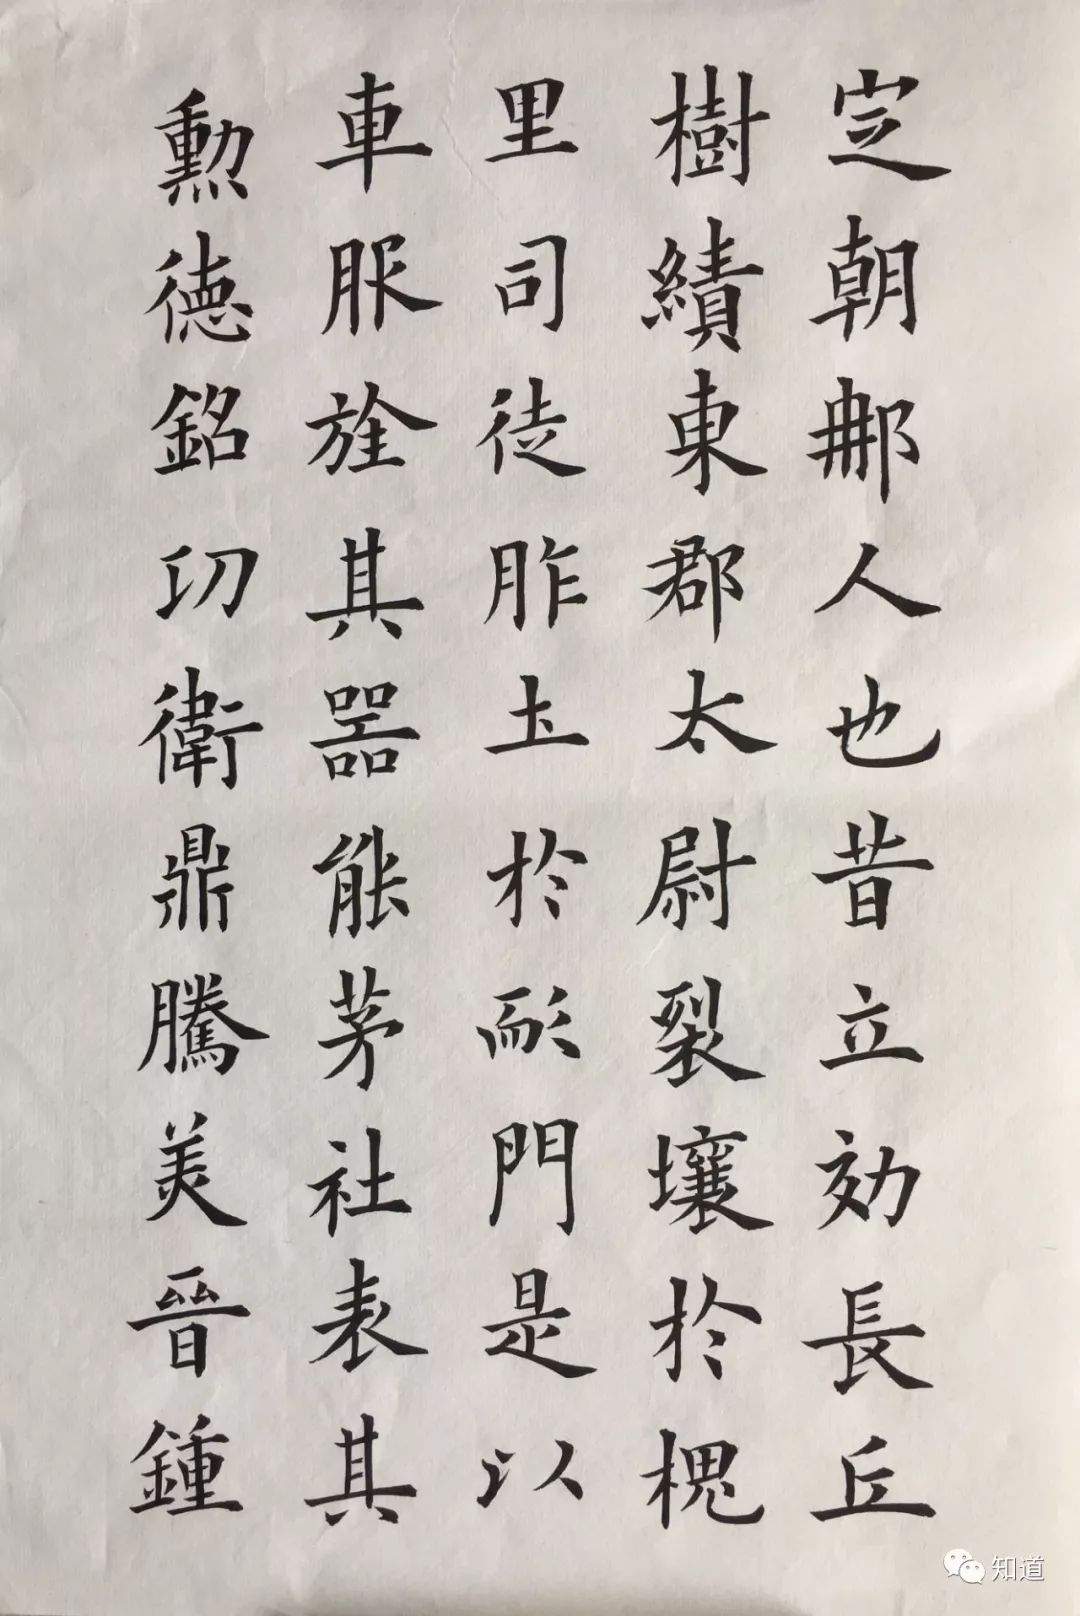 定朝鄌人也昔立効長丘
樹績東郡太尉裂壤於槐
里司徒胙土於耏門是以
車服旌其器能茅社表其
勲徳銘功衛鼎騰美晉鍾
知道